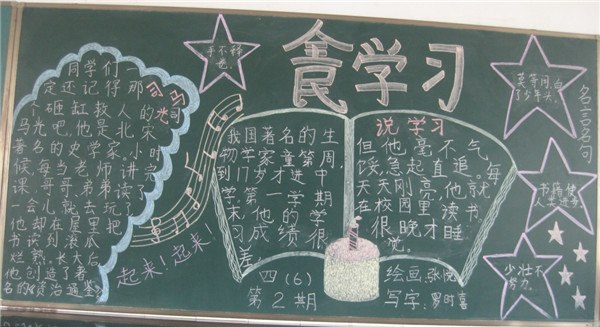 食学习
手不释
卷。
同学们一
定还记得那
个砸缸救人的司
马光吧,他是北宋
著名的史学家。小时
候,每当老师讲完
课,哥哥、弟弟读了
一会儿就去玩了,
他却在屋里把
书读到滚瓜
烂熟。长大后,
他创造了著
名的《资治通鉴》
起来!起来!
我国著名的生
物学家童第周
到17岁才进中
学,第一学期
末,他的学
习成绩很
差
说学习
但他毫不气
馁,急起直追。每
天天刚亮,他就
在校园里读书
很晚才睡
觉。
四(6)
第2期
绘画:张悦
写字:罗时喜
莫等闲,白
了少年头,
名言名句
书籍使
人类进步
少壮不
努力。